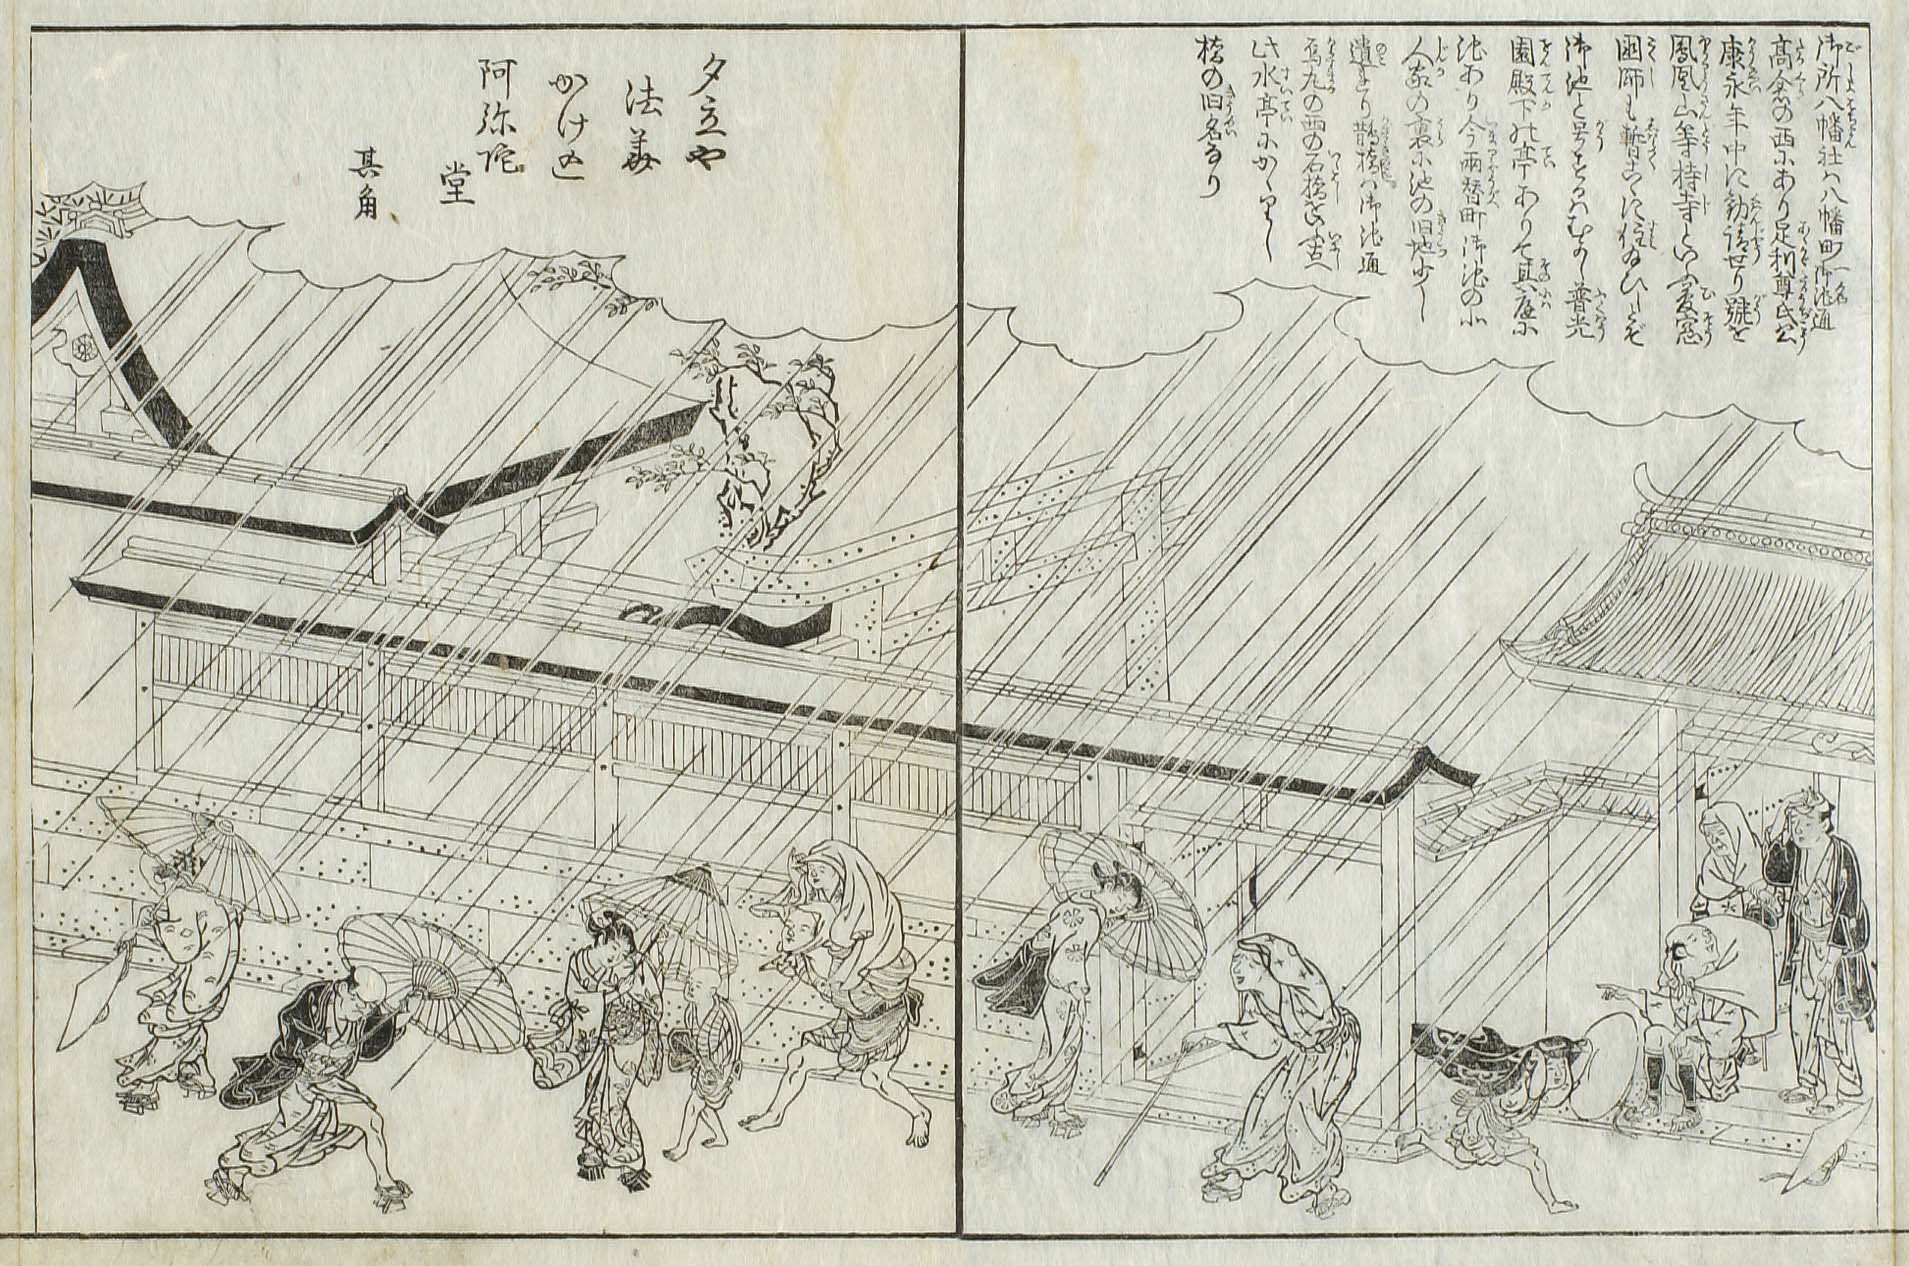 御所八幡社ハ八幡町一名御池通
高倉の西にあり足利尊氏公
康永年中に勧請せり號を
鳳凰山等持寺といふ夢窓
国師も暫こゝに住ゐひしとぞ
御池と号するハむかし普光
園殿下の亭ありて其庭に
池あり今両替町御池の北
人家の裏に池の旧地少し
遺れり鵲橋ハ御池通
烏丸の西の石橋をいふ古へ
此水亭にかゝりし
橋の旧名なり
夕立や
法華
かけ込
阿弥陀
堂
其角